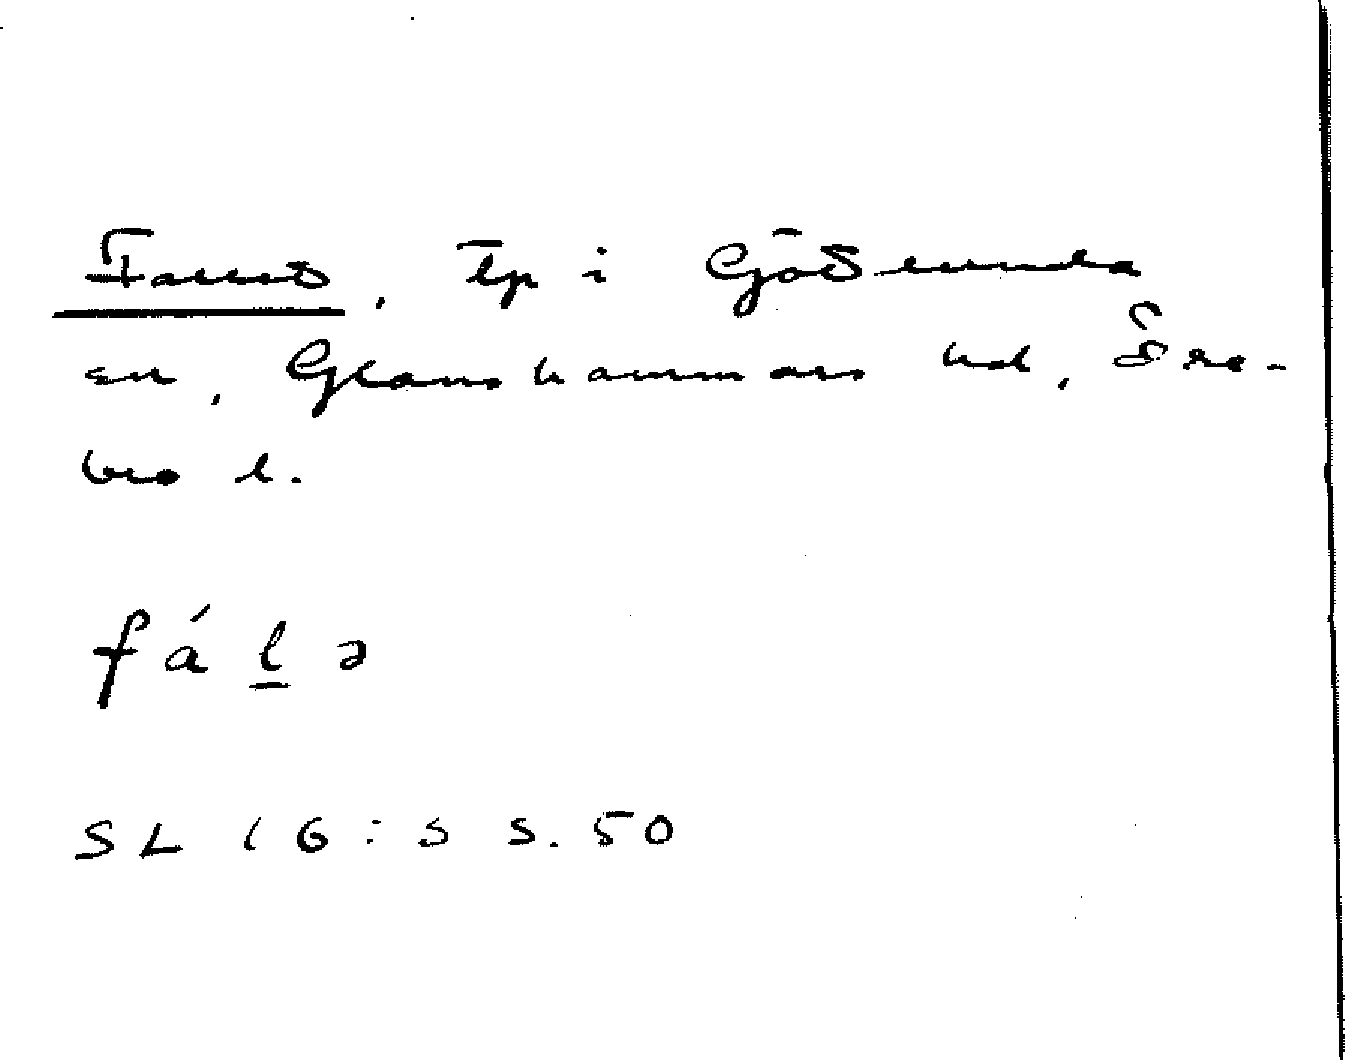 Fallet, Tp i Götlunda
sn, Glanshammars hd, Öre-
bro l.
fá l̲ ə
SL 16:5 S. 50